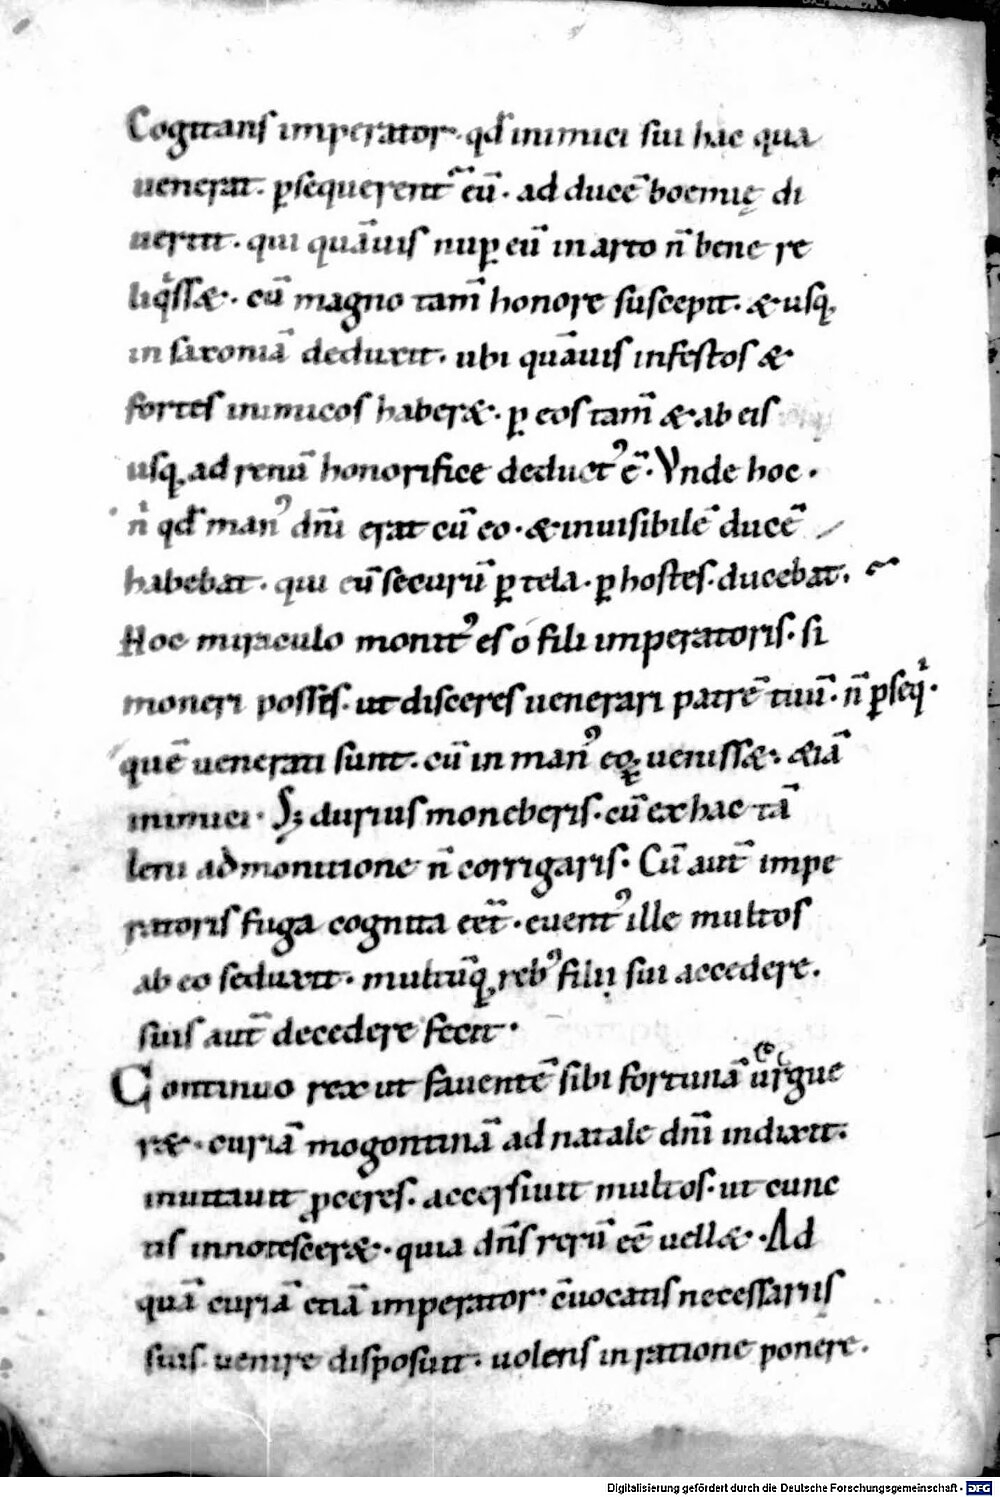 Cogitans imperator· qd̄ inimici sui hac qua
uenerat· ꝑsequerent᷑ eū· ad ducē boemię di
uertit· qui quāuis nuꝑ eū in arto n̄ bene re
liqͥssæ· cū magno tam̄ honore suscepit· & usq;
in saxoniā deduxit· ubi quāuis infestos &
fortes inimicos haberæ· ꝑ eos tam̄ & ab eis
usq; ad renū honorifice deductꝰ ē· Vnde hoc·
nͥ qd̄ manꝰ dn̄i erat cū eo· & inuisibilē ducē
habebat· qui eū securū ꝑ tela· ꝑ hostes· ducebat·
Hoc miraculo monitꝰ es o fili imperatoris· si
moneri posses· ut disceres uenerari patrē tuū· n̄ ꝑseqͥ·
quē uenerati sunt· cū in manꝰ eoꝝ uenissæ· æiā
inimici· Sꝫ durius moneberis· cū ex hac tā
leni admonitione n̄ corrigaris· Cū aut̄ impe
ratoris fuga cognita eēt· euentꝰ ille multos
ab eo seduxit· multūq; rebꝰ filii sui accedere·
suis aut̄ decedere fecit·
Continuo rex ut fauentē sibi fortunā urgue
ræ· curiā mogontinā ad natale dn̄i indixit·
inuitauit ꝓceres· accersiuit multos· ut cunc
tis innotesceræ· quia dn̄s rerū eē uellæ· Ad
quā curiā etiā imperator· c̄uocatis necessariis
suis uenire disposuit· uolens in ratione ponere·
Digitalisierung gefördert durch die Deutsche Forschungsgemeinschaft - DFG